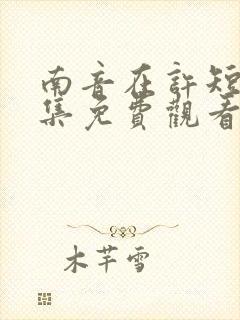 南音在許短
集免費觀看
木芊雪